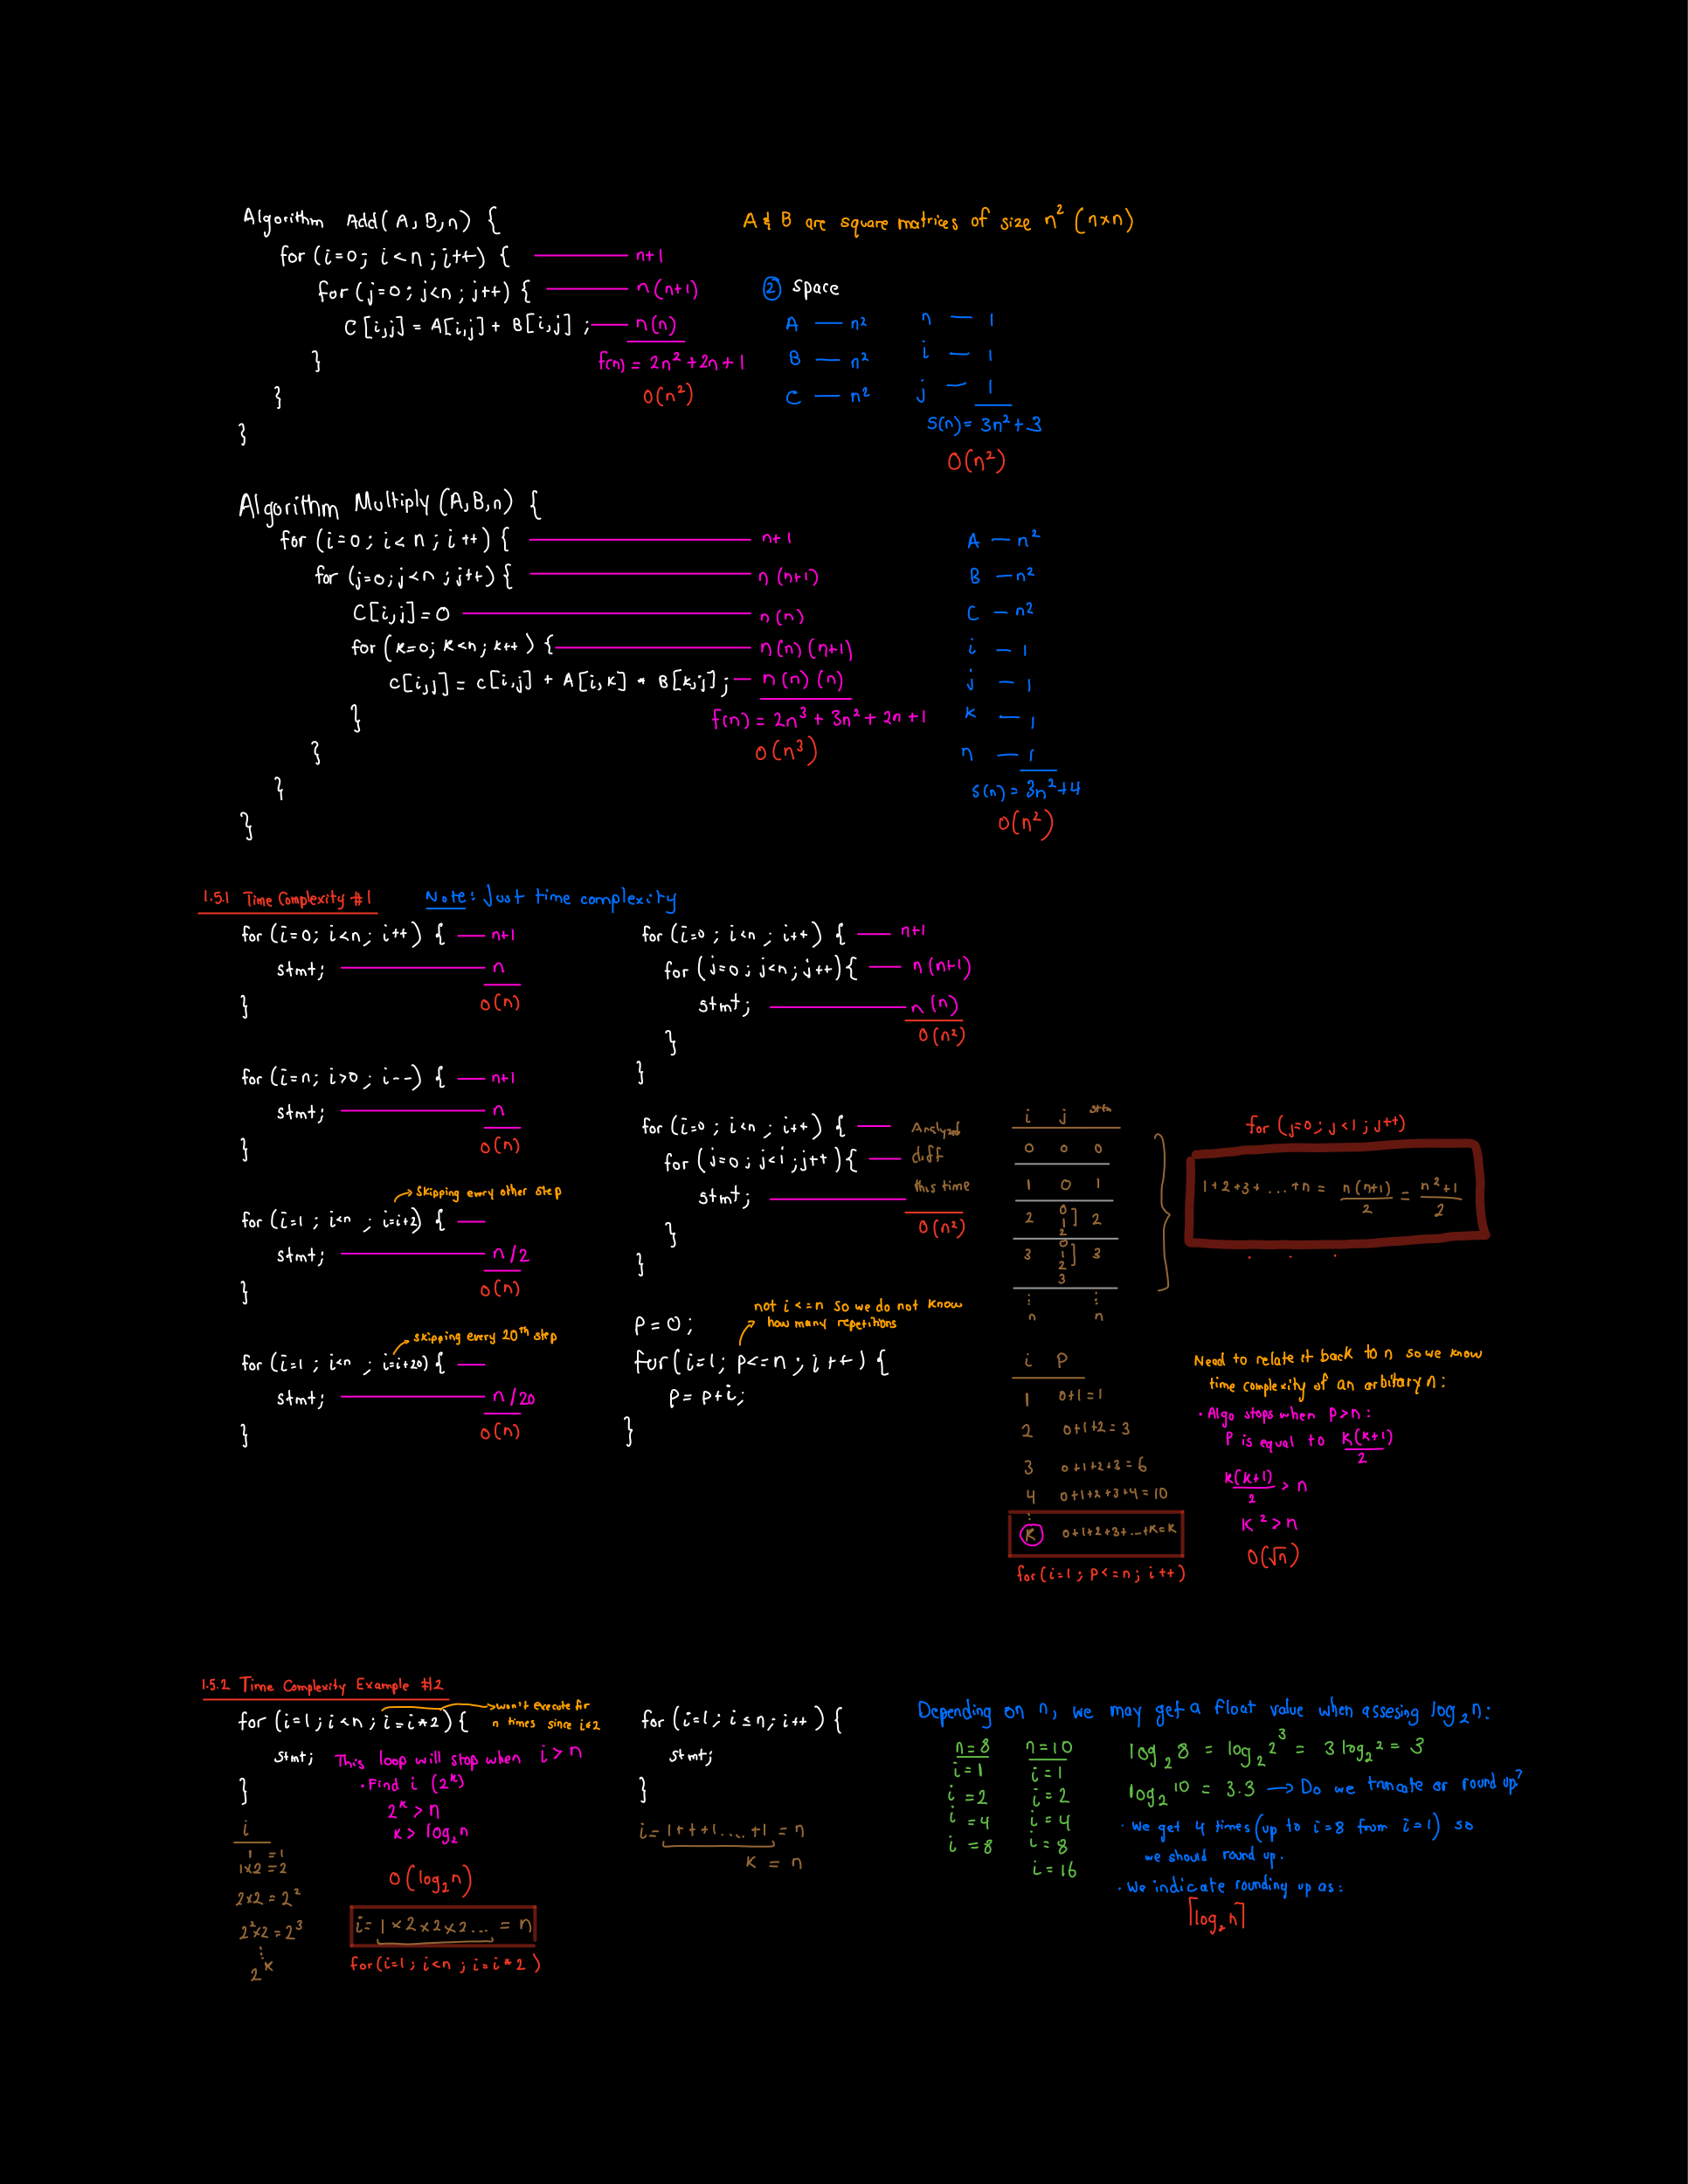 Algorithm Add(A,B,n) {
for (i=0; i<n; i++) { n+1
for (j=0; j<n; j++) { n(n+1)
C[i,j] = A[i,j] + B[i,j]; n(n)
} f(n) = 2n²+2n+1
} O(n²)
}
A & B are square matrices of size n² (n×n)
② Space
A — n² n — 1
B — n² i — 1
C — n² j — 1
S(n) = 3n²+3
O(n²)
Algorithm Multiply(A,B,n) {
for (i=0; i<n; i++) { n+1
for (j=0; j<n; j++) { n(n+1)
C[i,j]=0 n(n)
for (k=0; k<n; k++) { n(n)(n+1)
C[i,j] = C[i,j] + A[i,k] * B[k,j]; n(n)(n)
} f(n) = 2n³+3n²+2n+1
} O(n³)
}
}
A — n²
B — n²
C — n²
i — 1
j — 1
k — 1
n — 1
S(n) = 3n²+4
O(n²)
1.5.1 Time Complexity #1 Note: Just time complexity
for (i=0; i<n; i++) { — n+1
stmt; n
} O(n)
for (i=n; i>0; i--) { — n+1
stmt; n
} O(n)
Skipping every other step
for (i=1; i<n; i=i+2) { —
stmt; n/2
} O(n)
Skipping every 20th step
for (i=1; i<n; i=i+20) { —
stmt; n/20
} O(n)
for (i=0; i<n; i++) { — n+1
for (j=0; j<n; j++) { — n(n+1)
stmt; n(n)
} O(n²)
}
for (i=0; i<n; i++) { — Analyzed
for (j=0; j<i; j++) { — diff
stmt; this time
} O(n²)
}
i j stmt
0 0 0
1 0 1
2 0 1 2 2
3 0 1 2 3 3
⋮ ⋮
n n
for (j=0; j<1; j++)
1+2+3+...+n = n(n+1)/2 = n²+1/2
not i<=n so we do not know
how many repetitions
P=0;
for(i=1; p<=n; i++) {
p = p+i;
}
i P
1 0+1=1
2 0+1+2=3
3 0+1+2+3=6
4 0+1+2+3+4=10
⋮
K 0+1+2+3+...+K=K
for(i=1; p<=n; i++)
Need to relate it back to n so we know
time complexity of an arbitary n:
· Algo stops when P>n:
P is equal to K(K+1)/2
K(K+1)/2 > n
K² > n
O(√n)
1.5.2 Time Complexity Example #2
won't execute for
n times since i*2
for (i=1; i<n; i=i*2) {
stmt; This loop will stop when i>n
} · Find i (2ᵏ)
2ᵏ > n
K > log₂n
O(log₂n)
i
1 =1
1×2=2
2×2=2²
2²×2=2³
⋮
2ᵏ
i= 1×2×2×2... = n
for(i=1; i<n; i=i*2)
for (i=1; i≤n; i++) {
stmt;
}
i= 1+1+1....+1 = n
K = n
Depending on n, we may get a float value when assesing log₂n:
n=8 n=10
i=1 i=1
i=2 i=2
i=4 i=4
i=8 i=8
i=16
log₂8 = log₂2³ = 3log₂2 = 3
log₂10 = 3.3 → Do we truncate or round up?
· We get 4 times (up to i=8 from i=1) so
we should round up.
· We indicate rounding up as:
⌈log₂n⌉